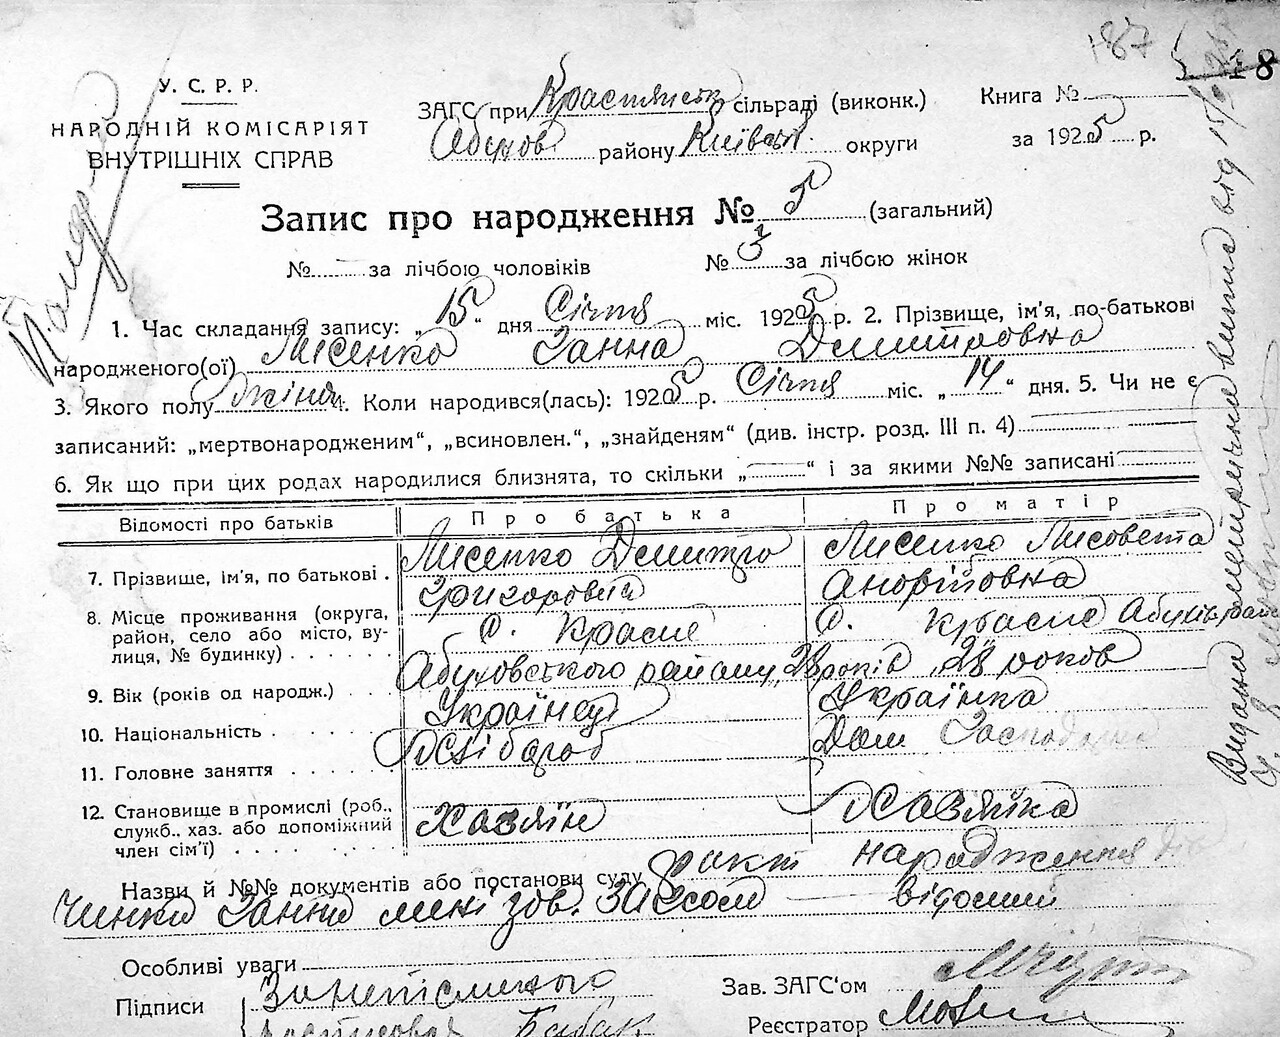 187
8
У. С. Р. Р.
НАРОДНІЙ КОМІСАРІЯТ
ВНУТРІШНІХ СПРАВ
ЗАГС при сільраді (виконк.)
Книга №
району Київськ. округи
за 1925 р.
Запис про народження № 5 (загальний)
№ — за лічбою чоловіків № 3 за лічбою жінок
1. Час складання запису: „15“ дня Січня міс. 1925 р. 2. Прізвище, ім'я, по-батькові
народженого(ої) Лисенко Ганна Дмитровна
3. Якого полу жіно 4. Коли народився(лась): 1925 р. Січня міс. „14“ дня. 5. Чи не є
записаний: „мертвонародженим“, „всиновлен.“, „знайденям“ (див. інстр. розд. III п. 4)
6. Як що при цих родах народилися близнята, то скільки „—“ і за якими №№ записані
Відомості про батьків Про батька Про матір
7. Прізвище, ім'я, по батькові . Лисенко Дмитро Григорович Лисенко Лисовета Андрійовна
8. Місце проживання (округа,
район, село або місто, ву-
лиця, № будинку) . . . . . . с. Красне Абуховського району, 28 років с. Красне
9. Вік (років од народж.) . . . 28 років
10. Національність . . . . . . Українец Українка
11. Головне заняття . . . . . . Хлібороб Дом Господарка
12. Становище в промислі (роб.,
служб., хаз. або допоміжний
член сім'ї) . . . . . . . . Хазяїн Хазяйка
Назви й №№ документів або постанови суду факт народження дів
чинки Ганни мені зав. Загсом — відомий
Особливі уваги
Підписи За неписменого Бабак
Зав. ЗАГС'ом
Реєстратор
Видана від